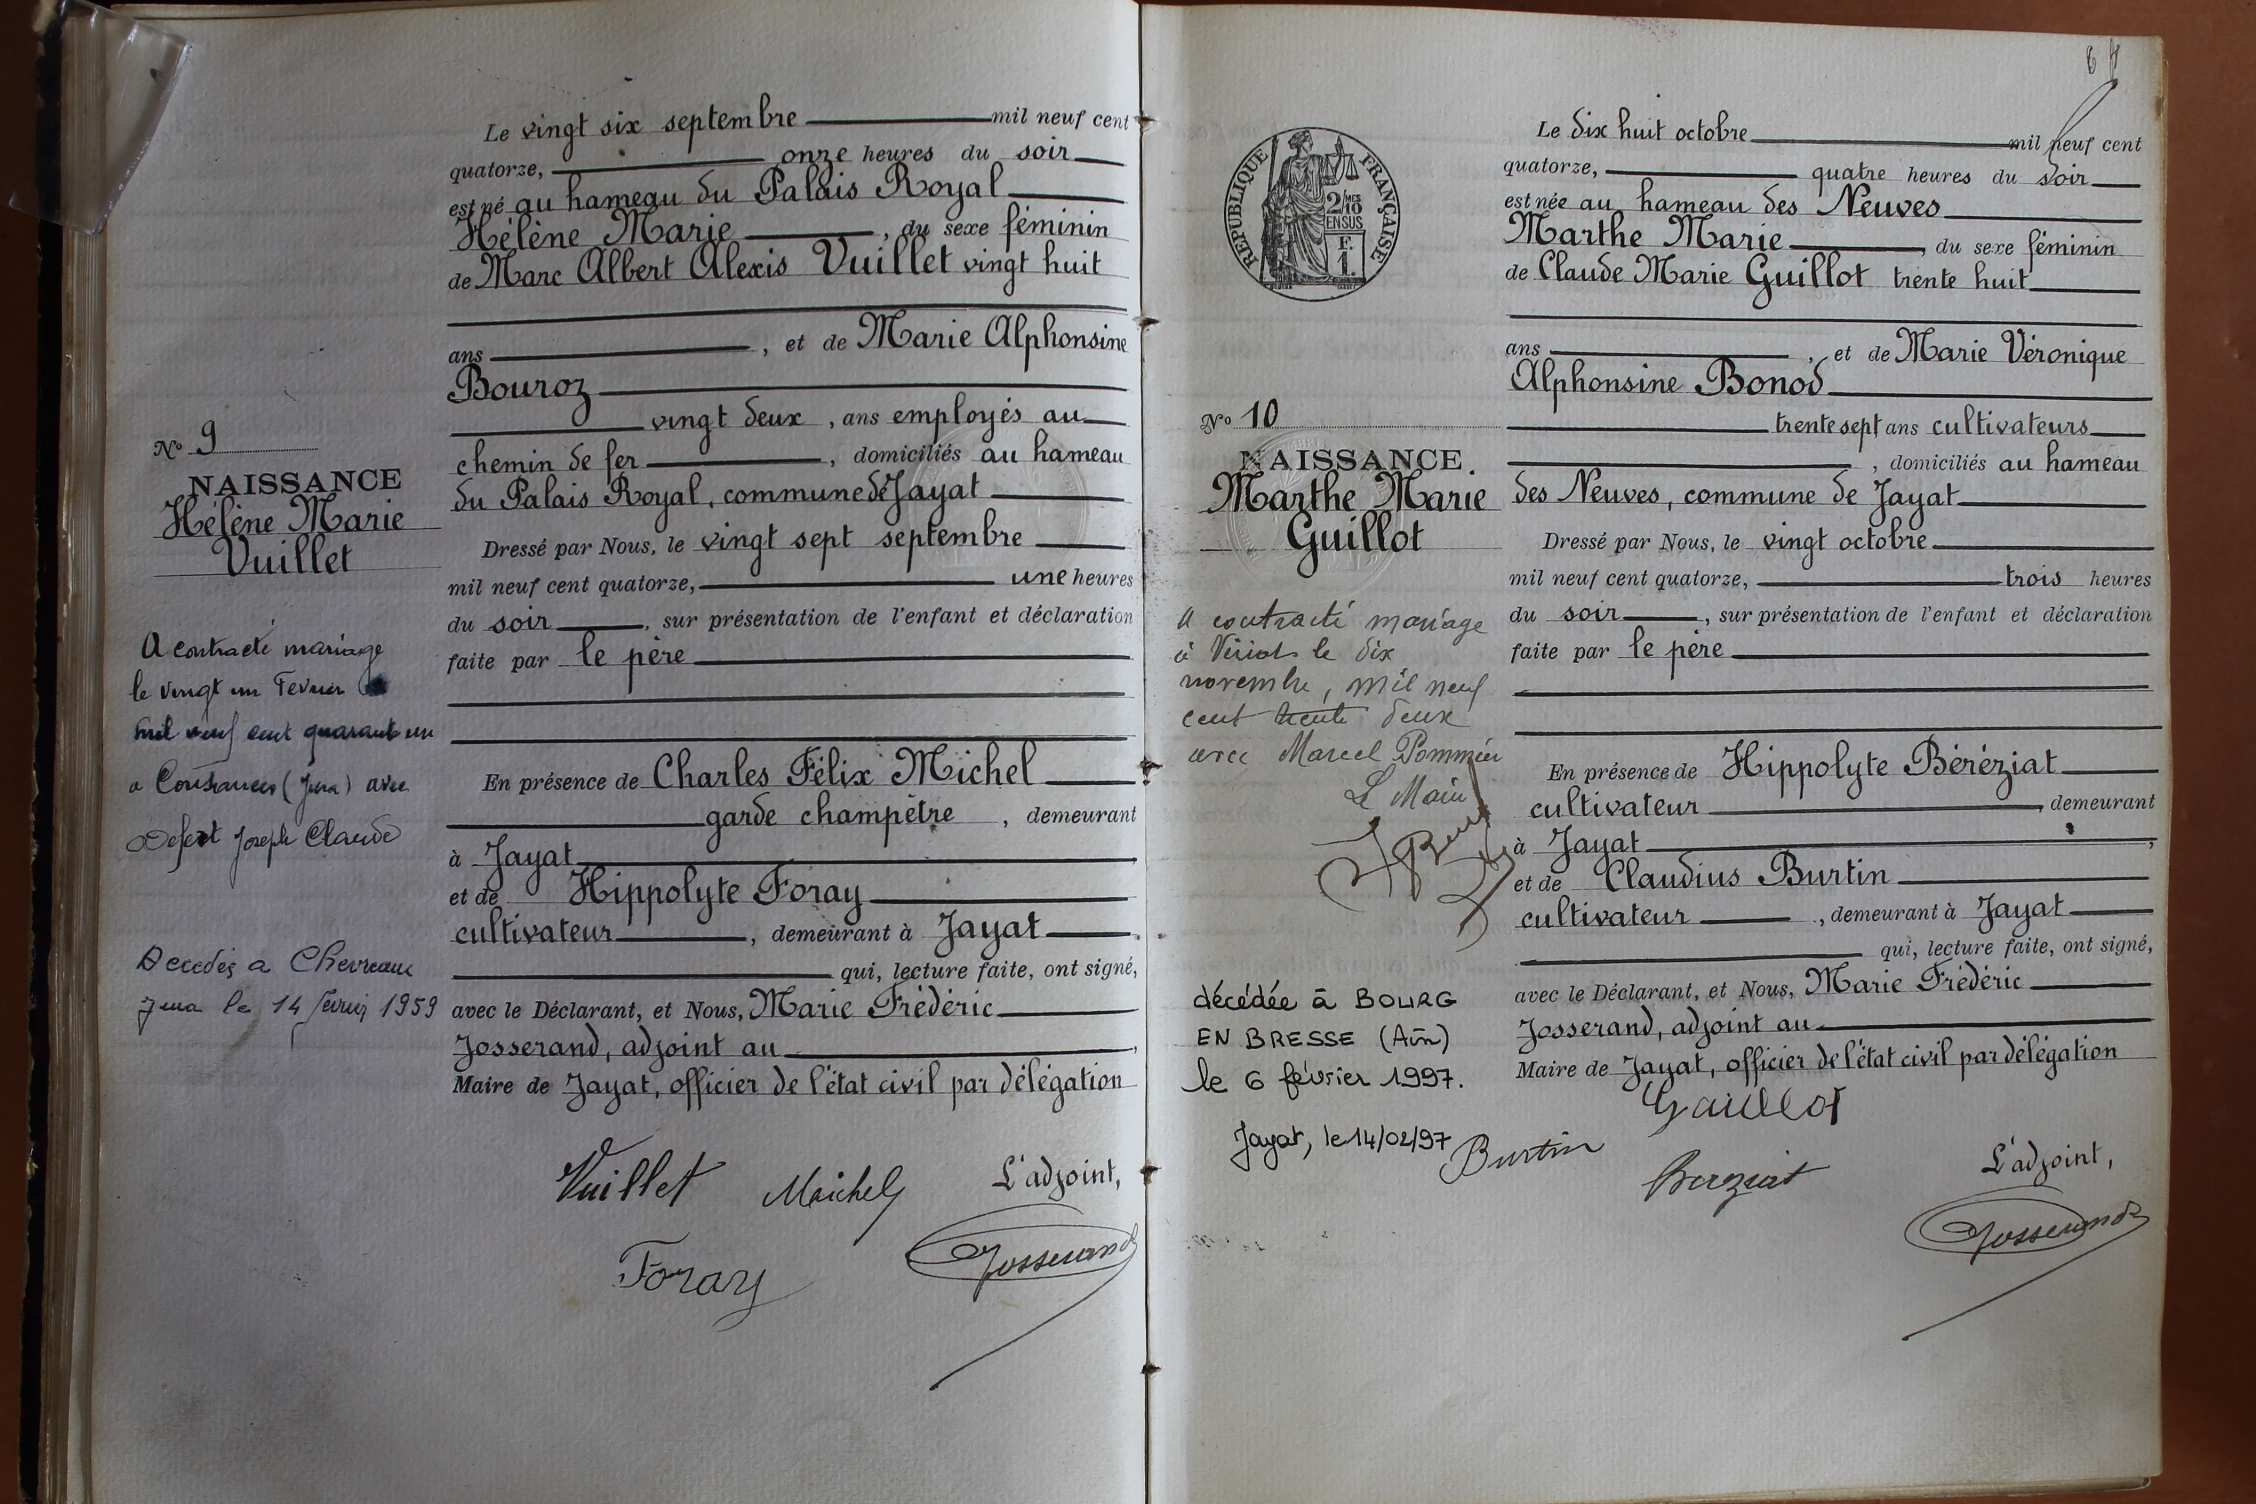 Le vingt six septembre mil neuf cent
quatorze, onze heures du soir
est né au hameau du Palais Royal
Hélène Marie, du sexe féminin
de Marc Albert Alexis Vuillet vingt huit
ans, et de Marie Alphonsine
Bouroz
vingt deux, ans employés au
chemin de fer, domiciliés au hameau
du Palais Royal, commune de Jayat
Dressé par Nous, le vingt sept septembre
mil neuf cent quatorze, une heures
du soir, sur présentation de l'enfant et déclaration
faite par le père
En présence de Charles Félix Michel
garde champêtre, demeurant
à Jayat
et de Hippolyte Foray
cultivateur, demeurant à Jayat
qui, lecture faite, ont signé,
avec le Déclarant, et Nous, Marie Frédéric
Josserand, adjoint au
Maire de Jayat, officier de l'état civil par délégation
Vuillet Michel L'adjoint,
Foray Josserand
No 9
NAISSANCE
Hélène Marie
Vuillet
A contracté mariage
le vingt un Fevrier
mil neuf cent quarante un
a Cousance (Jura) avec
Joseph Claude
Decedés a Chevreaux
Jura le 14 février 1959
64
Le dix huit octobre mil neuf cent
quatorze, quatre heures du soir
est née au hameau des Neuves
Marthe Marie, du sexe féminin
de Claude Marie Guillot trente huit
ans, et de Marie Véronique
Alphonsine Bonod
trente sept ans cultivateurs
, domiciliés au hameau
des Neuves, commune de Jayat
Dressé par Nous, le vingt octobre
mil neuf cent quatorze, trois heures
du soir, sur présentation de l'enfant et déclaration
faite par le père
En présence de Hippolyte Béréziat
cultivateur, demeurant
à Jayat,
et de Claudius Burtin
cultivateur, demeurant à Jayat
qui, lecture faite, ont signé,
avec le Déclarant, et Nous, Marie Frédéric
Josserand, adjoint au
Maire de Jayat, officier de l'état civil par délégation
Guillot
Burtin Bereziat L'adjoint,
Josserand
RÉPUBLIQUE FRANÇAISE
2/10 MES
EN SUS
F.
1.
No 10
NAISSANCE.
Marthe Marie
Guillot
A contracté mariage
à Viriat le dix
novembre, mil neuf
cent trente deux
avec Marcel Pommier
Le Maire
décédée à BOURG
EN BRESSE (Ain)
le 6 février 1997.
Jayat, le 14/02/97